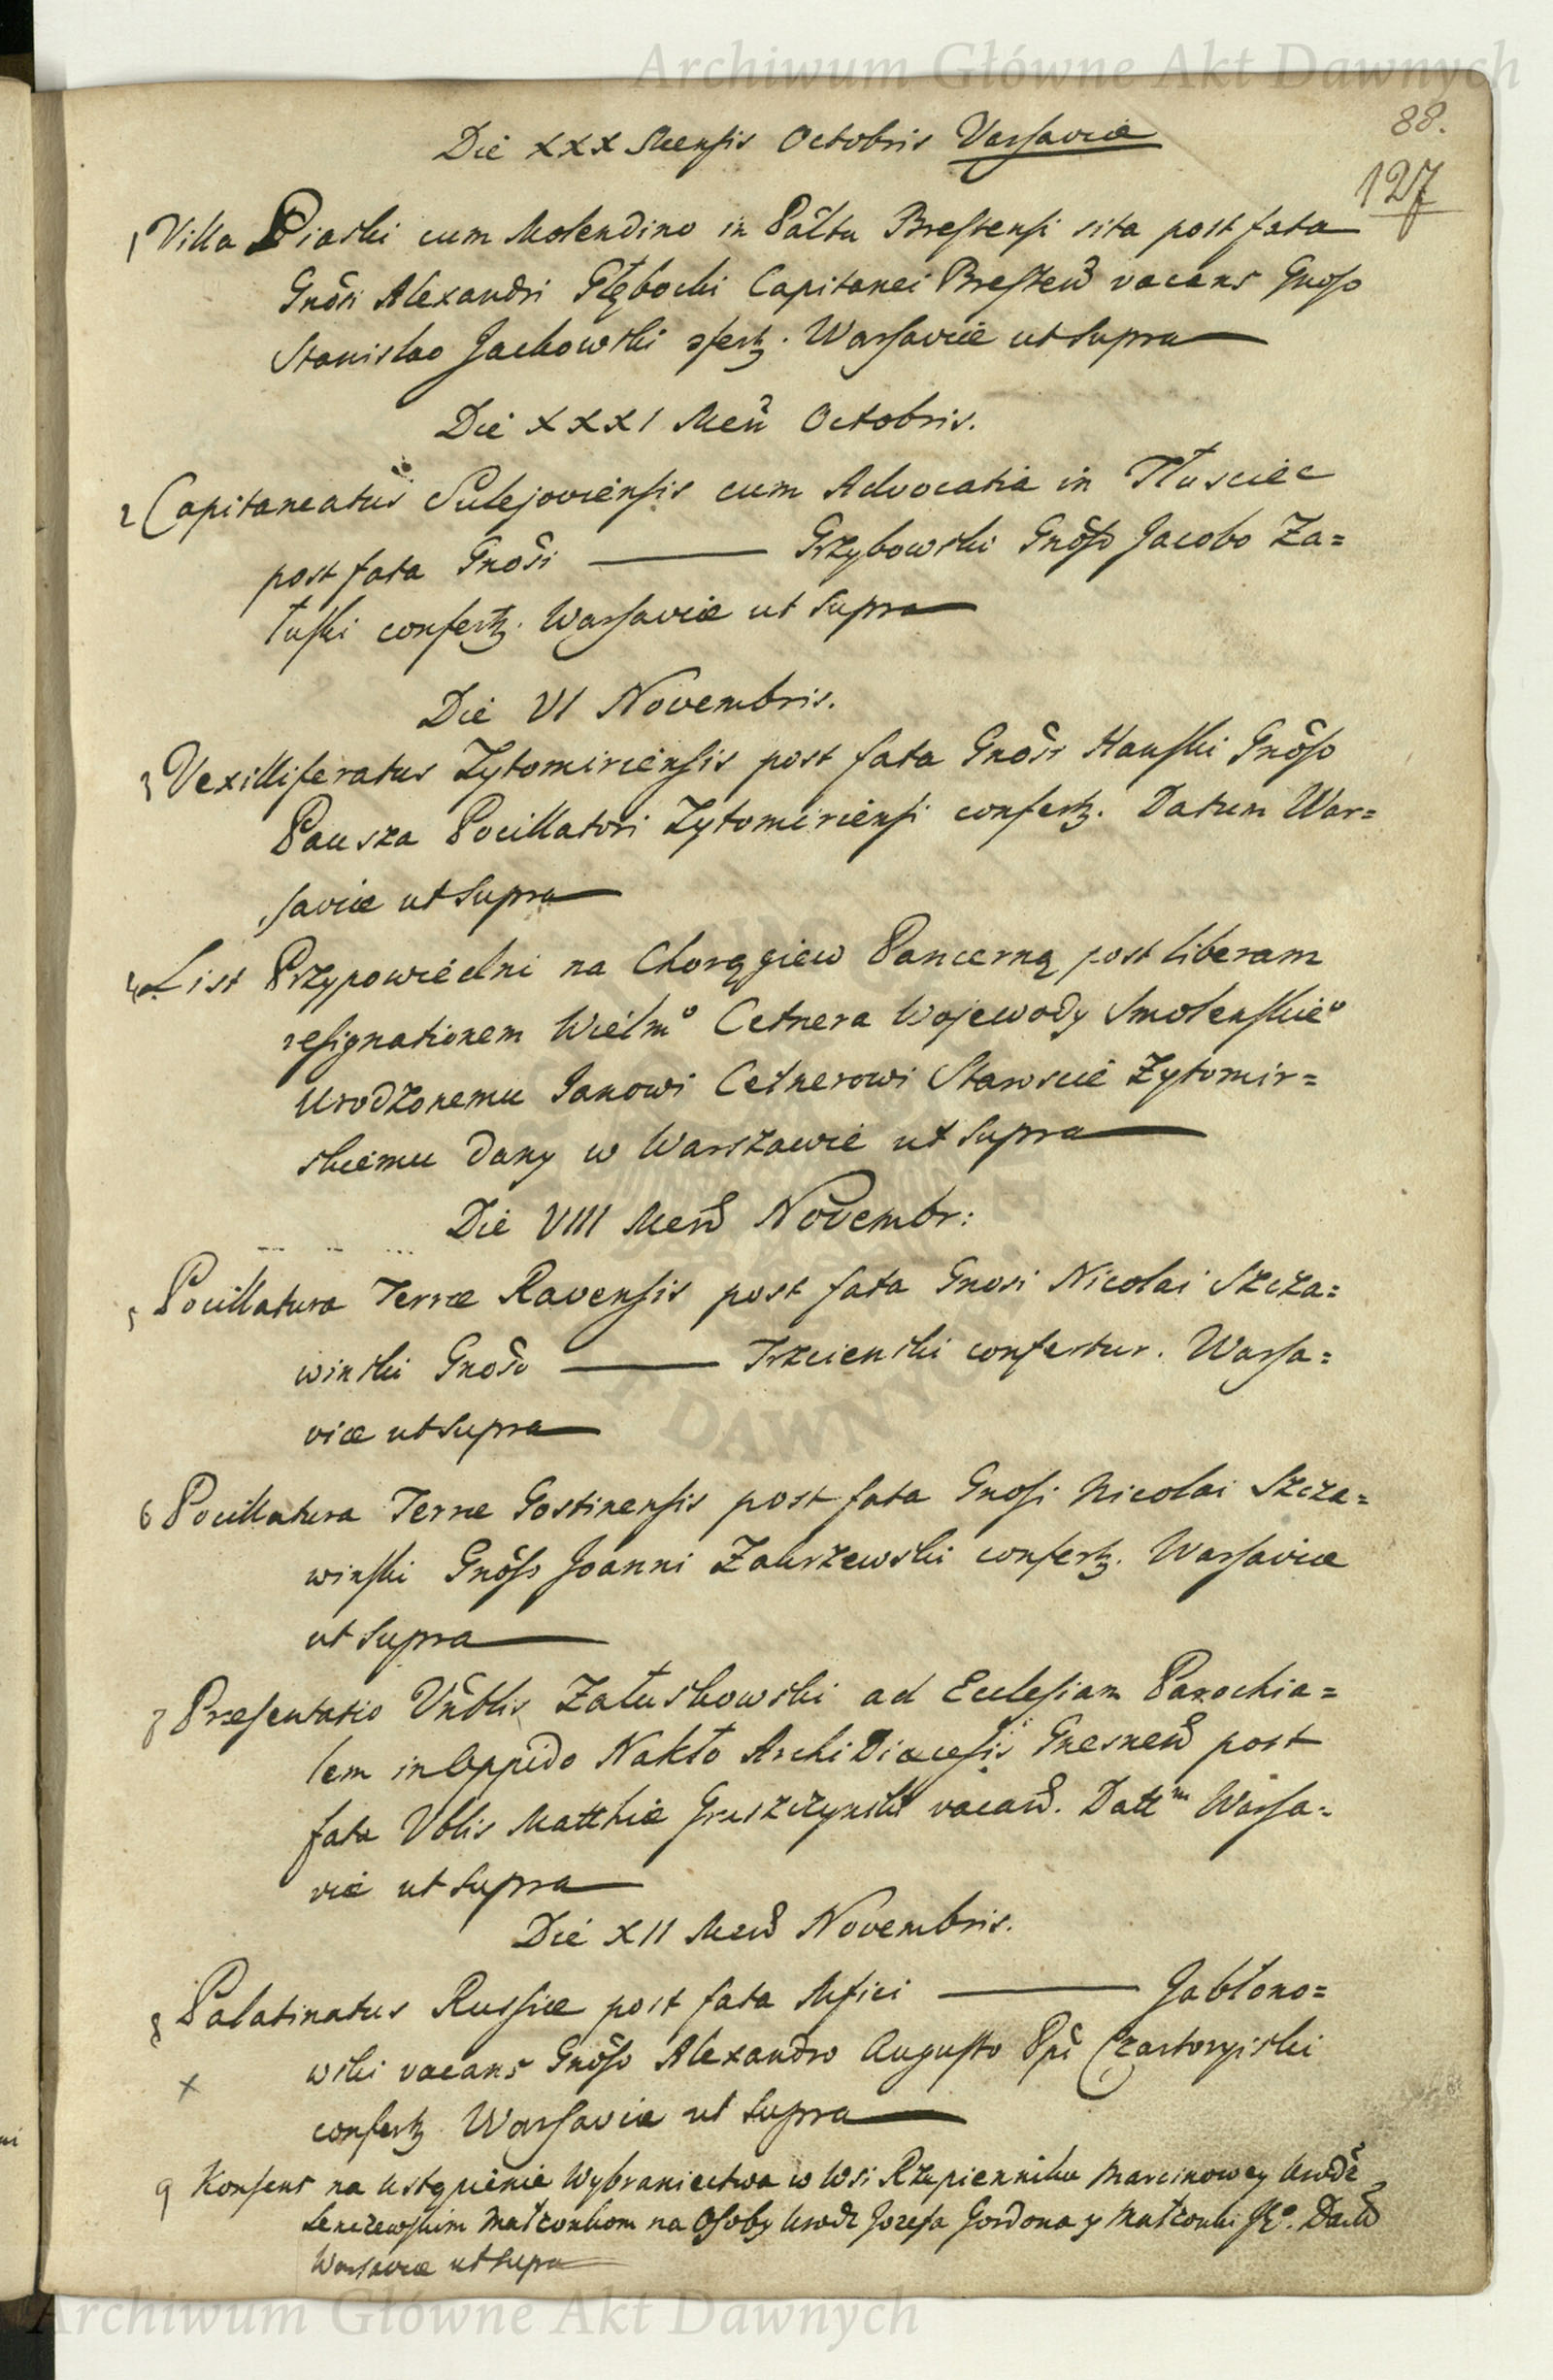 Archiwum Główne Akt Dawnych
88.
127
Die XXX Mensis Octobris Varsaviæ
1 Villa Piaski cum Molendino in Palttu Brestensi sita post fata
Gnosi Alexandri Głębocki Capitanei Bresten vacans Gnoso
Stanislao Jackowski Warsaviæ ut supra
Die XXXI Men Octobris.
2 Capitaneatus Sulejoviensis cum Advocatia in Tłusciec
post fata Gnosi — Grzybowski Gnoso Jacobo Za=
łuski confertz. Warsaviæ ut supra
Die VI Novembris.
3 Vexilliferatus Zytomiriensis post fata Gnosi Hanski Gnoso
Pausza Pocillatori Zytomiriensi confertz. Datum War=
saviæ ut supra
4 List Przypowiedni na Chorągiew Pancerną post liberam
resignationem Wielmo Cetnera Wojewody Smolenskieo
Urodzonemu Janowi Cetnerowi Staroscie Zytomir=
skiemu dany w Warszawie ut supra
Die VIII Men Novembr:
5 Pocillatura Terræ Ravensis post fata Gnosi Nicolai Szcza=
winski Gnoso — Trzcienski confertur. Warsa=
viæ ut supra
6 Pocillatura Terræ Gostinensis post fata Gnosi Nicolai Szcza=
winski Gnoso Joanni Zakrzewski confertz. Warsaviæ
ut supra
7 Præsentatio Vnblis Załuskowski ad Ecclesiam Parochia=
lem in Oppido Nakło Archi Diæcesis Gnesnen post
fata Vblis Matthiæ Gruszczynski vacan. Dattm Warsa=
viæ ut supra
Die XII Men Novembris.
8 Palatinatus Russiæ post fata Mfici — Jabłono=
wski vacans Gnoso Alexandro Augusto Ppi Czartoryiski
x
confertz. Warsaviæ ut supra
9 Konsens na ustąpienie Wybraniectwa w Wsi Rzepienniku Marcinowey Urodz
Lenczewskim Małżonkom na Osoby Urodz Jozefa Gordona y Małżonki
Warsaviæ ut supra
Archiwum Główne Akt Dawnych